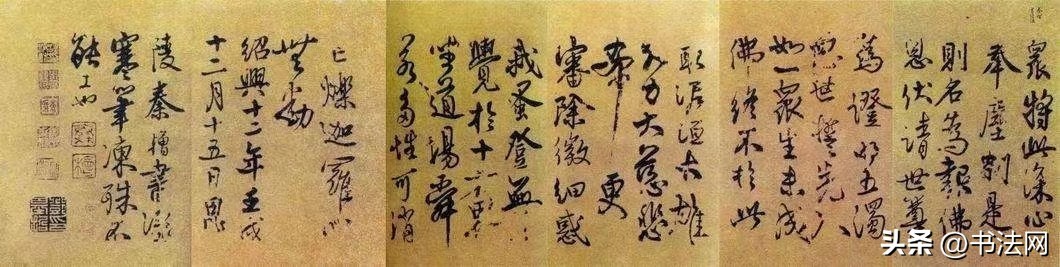 衆将此深心
奉塵刹是
則名為報佛
恩伏請世尊
為證明五濁
惡世誓先入
如一衆生未成
佛終不於此
取泥洹大雄
大力大慈悲
希更
審除微細惑
我登無上
覺於十方界
坐道場舜
若多性可消
亡爍迦羅心
無動
紹興十二年壬戌
十二月十五日恩
陵秦僧書
寒筆凍殊不
能工也
头条 @书法网